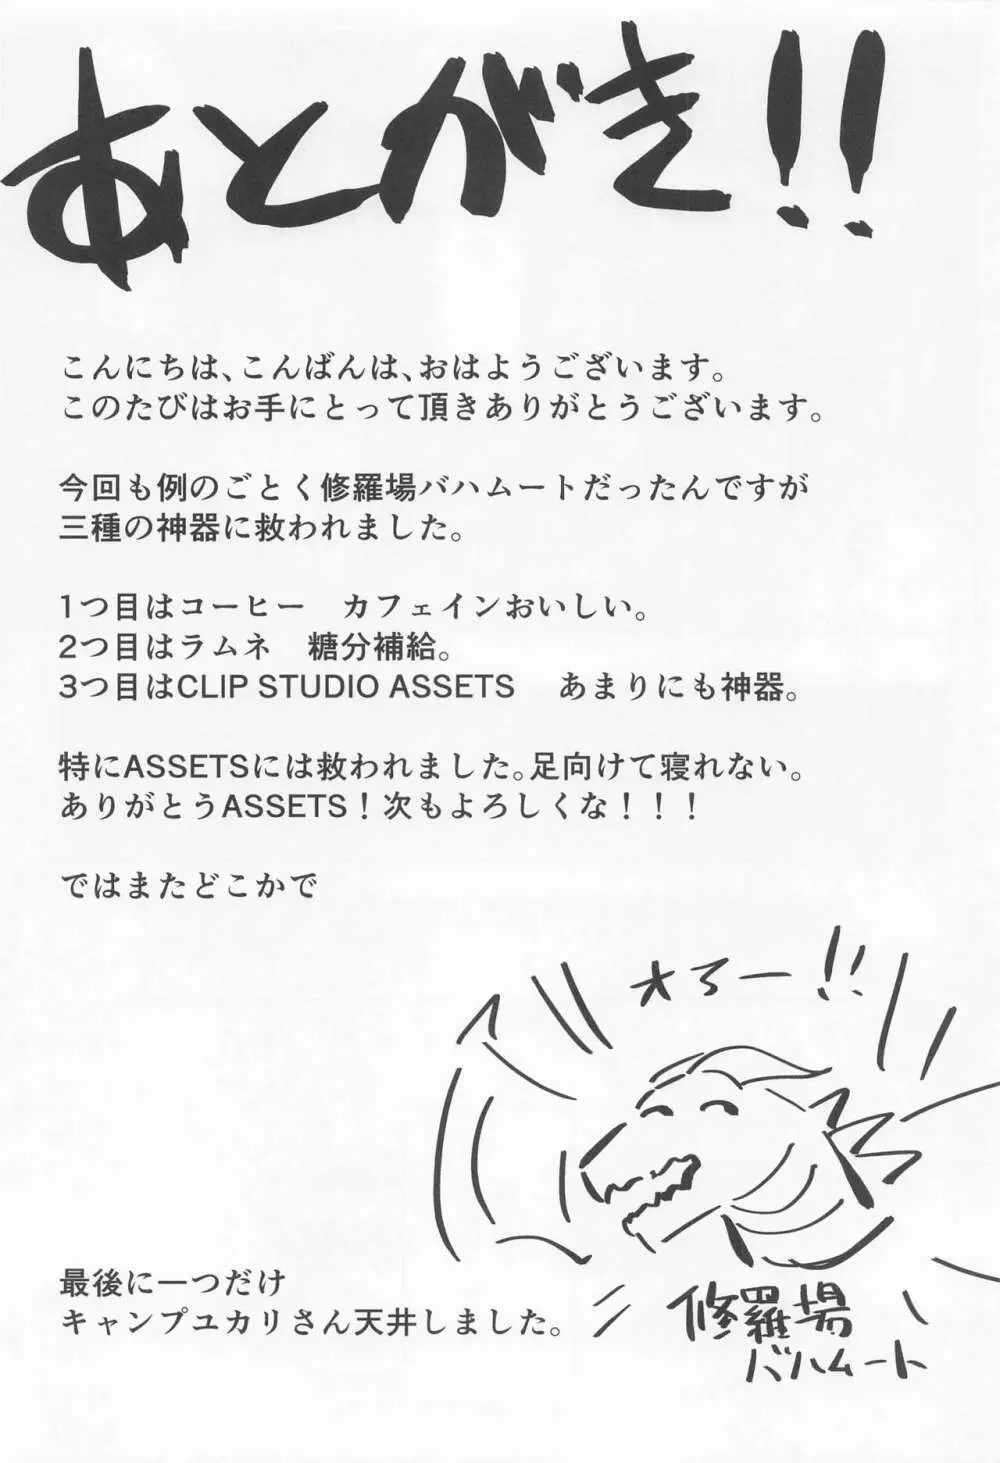 あとがき!!
こんにちは、こんばんは、おはようございます。
このたびはお手にとって頂きありがとうございます。
今回も例のごとく修羅場バハムートだったんですが
三種の神器に救われました。
1つ目はコーヒー　カフェインおいしい。
2つ目はラムネ　糖分補給。
3つ目はCLIP STUDIO ASSETS　あまりにも神器。
特にASSETSには救われました。足向けて寝れない。
ありがとうASSETS！次もよろしくな！！！
ではまたどこかで
オろー!!
修羅場
バハムート
最後に一つだけ
キャンプユカリさん天井しました。